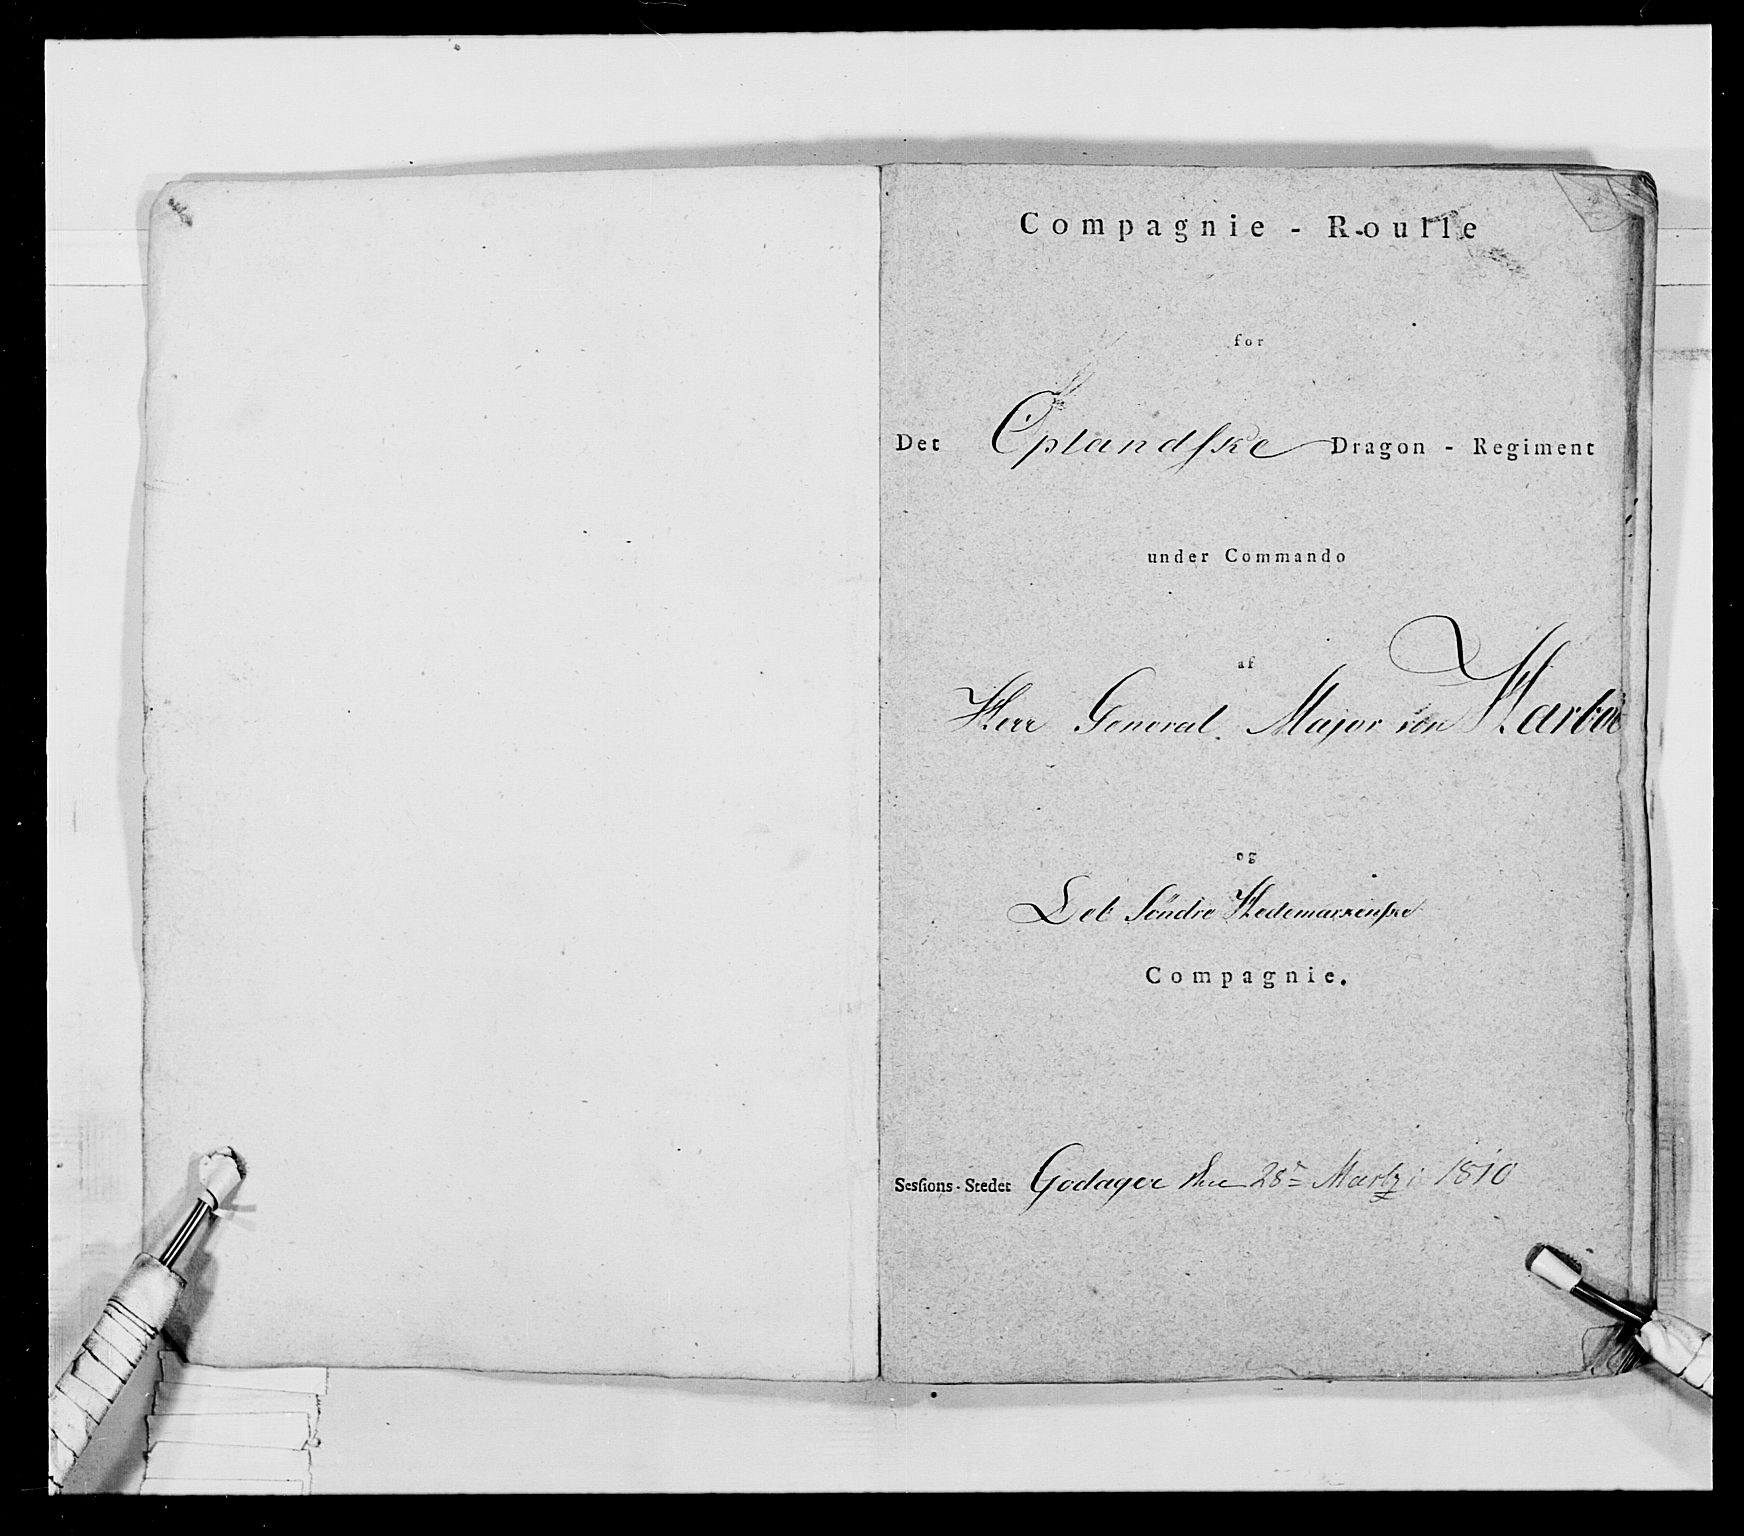 Compagnie - Roulle
for
Det Oplandske Dragon - Regiment
under Commando
af
Herr General Major von Harboe
og
Det Söndre Hedemarkenske
Compagnie.
Sessions-Stedet Godager den 28de Martz i 1810